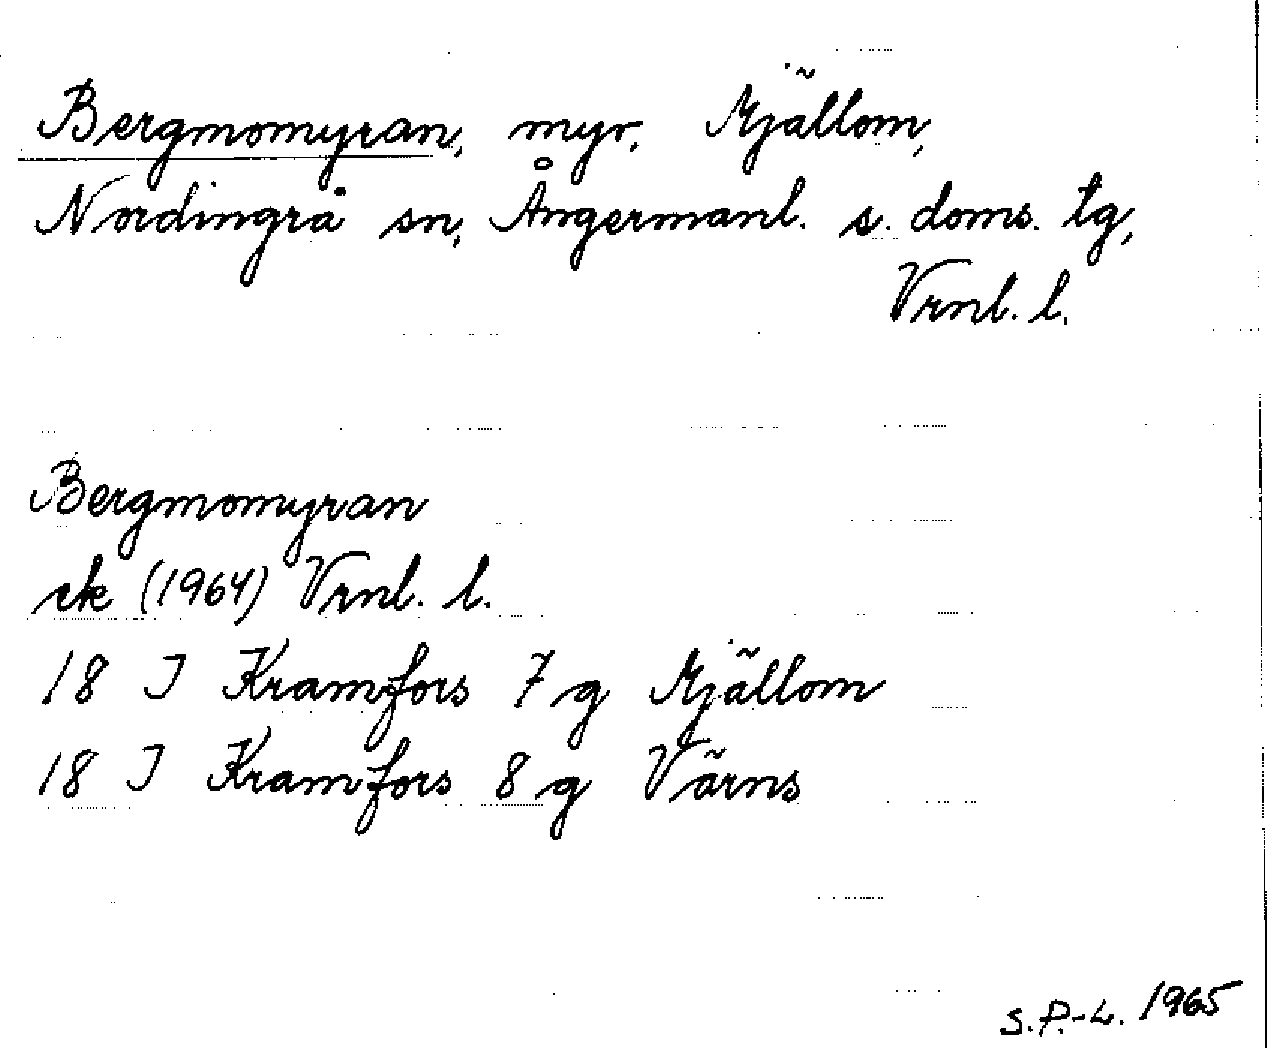 Bergmomyran, myr, Mjällom,
Nordingrå sn, Ångermanl. s. doms. tg,
Vrnl. l.
Bergmomyran
ek (1964) Vrnl. l.
18 I Kramfors 7 g Mjällom
18 I Kramfors 8 g Värns
S.P.-L. 1965